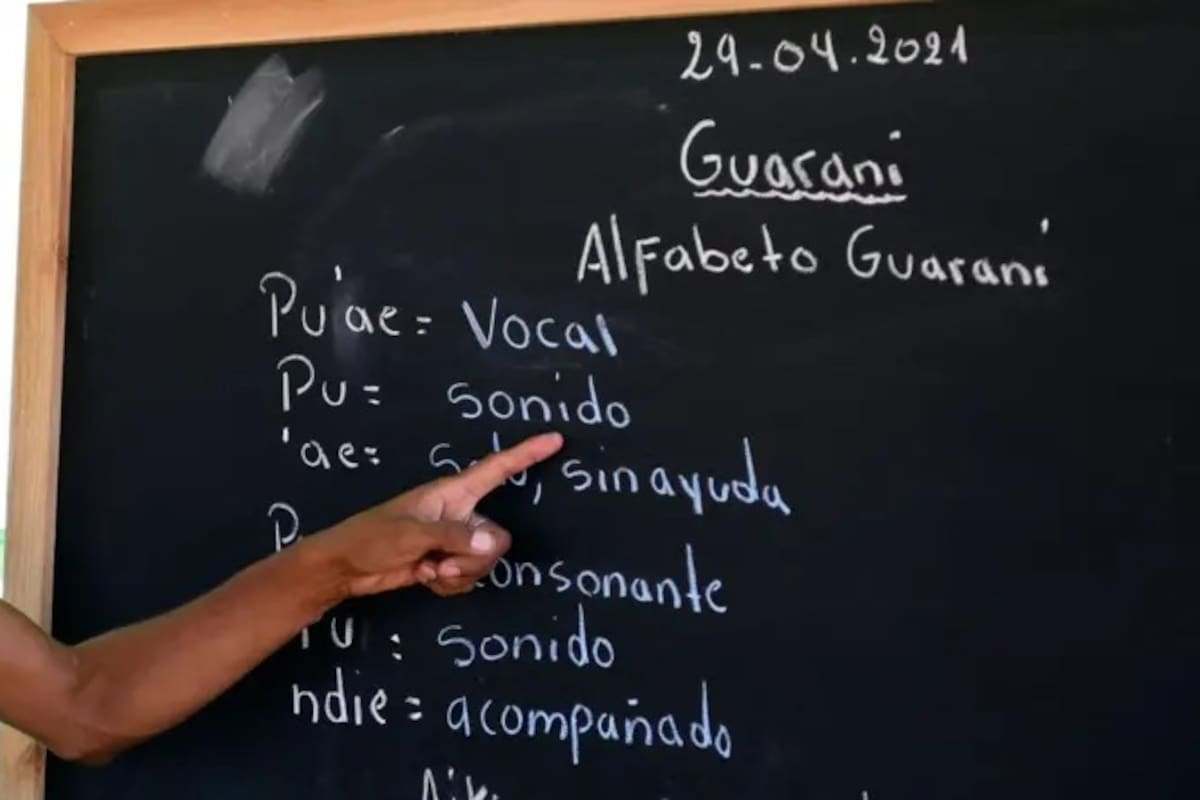 29-04.2021
Guaraní
Alfabeto Guaraní
Pu'ae = Vocal
Pu = sonido
'ae = , sin ayuda
sonido
ndie = acompañado